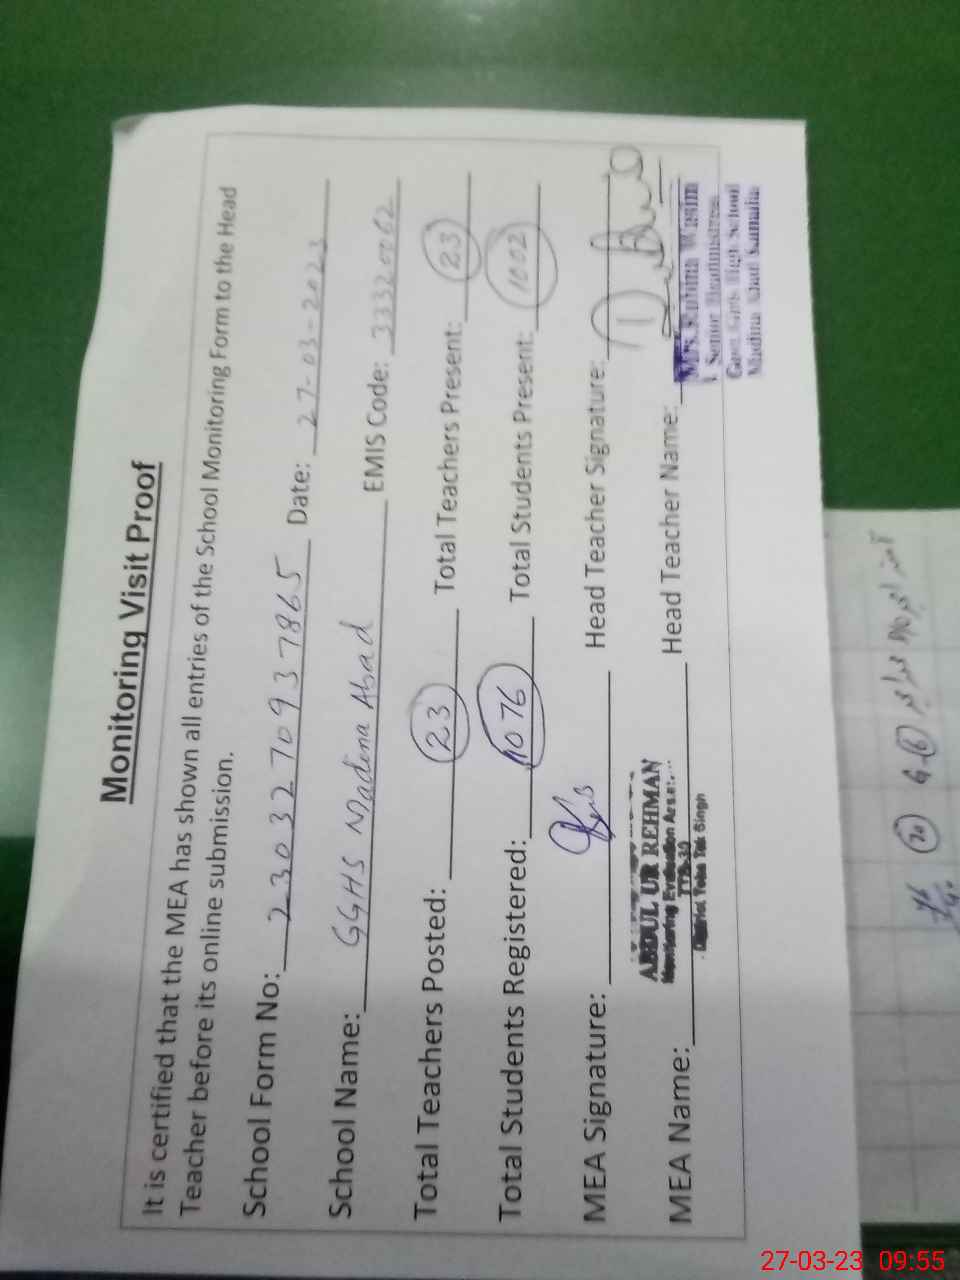 Monitoring Visit Proof
It is certified that the MEA has shown all entries of the School Monitoring Form to the Head
Teacher before its online submission.
School Form No: 2303270937865 Date: 27-03-2023
School Name: GGHS Madina Abad EMIS Code: 33320062
Total Teachers Posted: 23 Total Teachers Present: 23
Total Students Registered: 1076 Total Students Present: 1002
MEA Signature: Head Teacher Signature:
ABDUL UR REHMAN
Monitoring Evaluation
TTS-30
District Toba Tek Singh
MEA Name: Head Teacher Name:
Mrs. Rubina Wasim
Senior Headmistress
Govt. Girls High School
Madina Abad
27-03-23 09:55